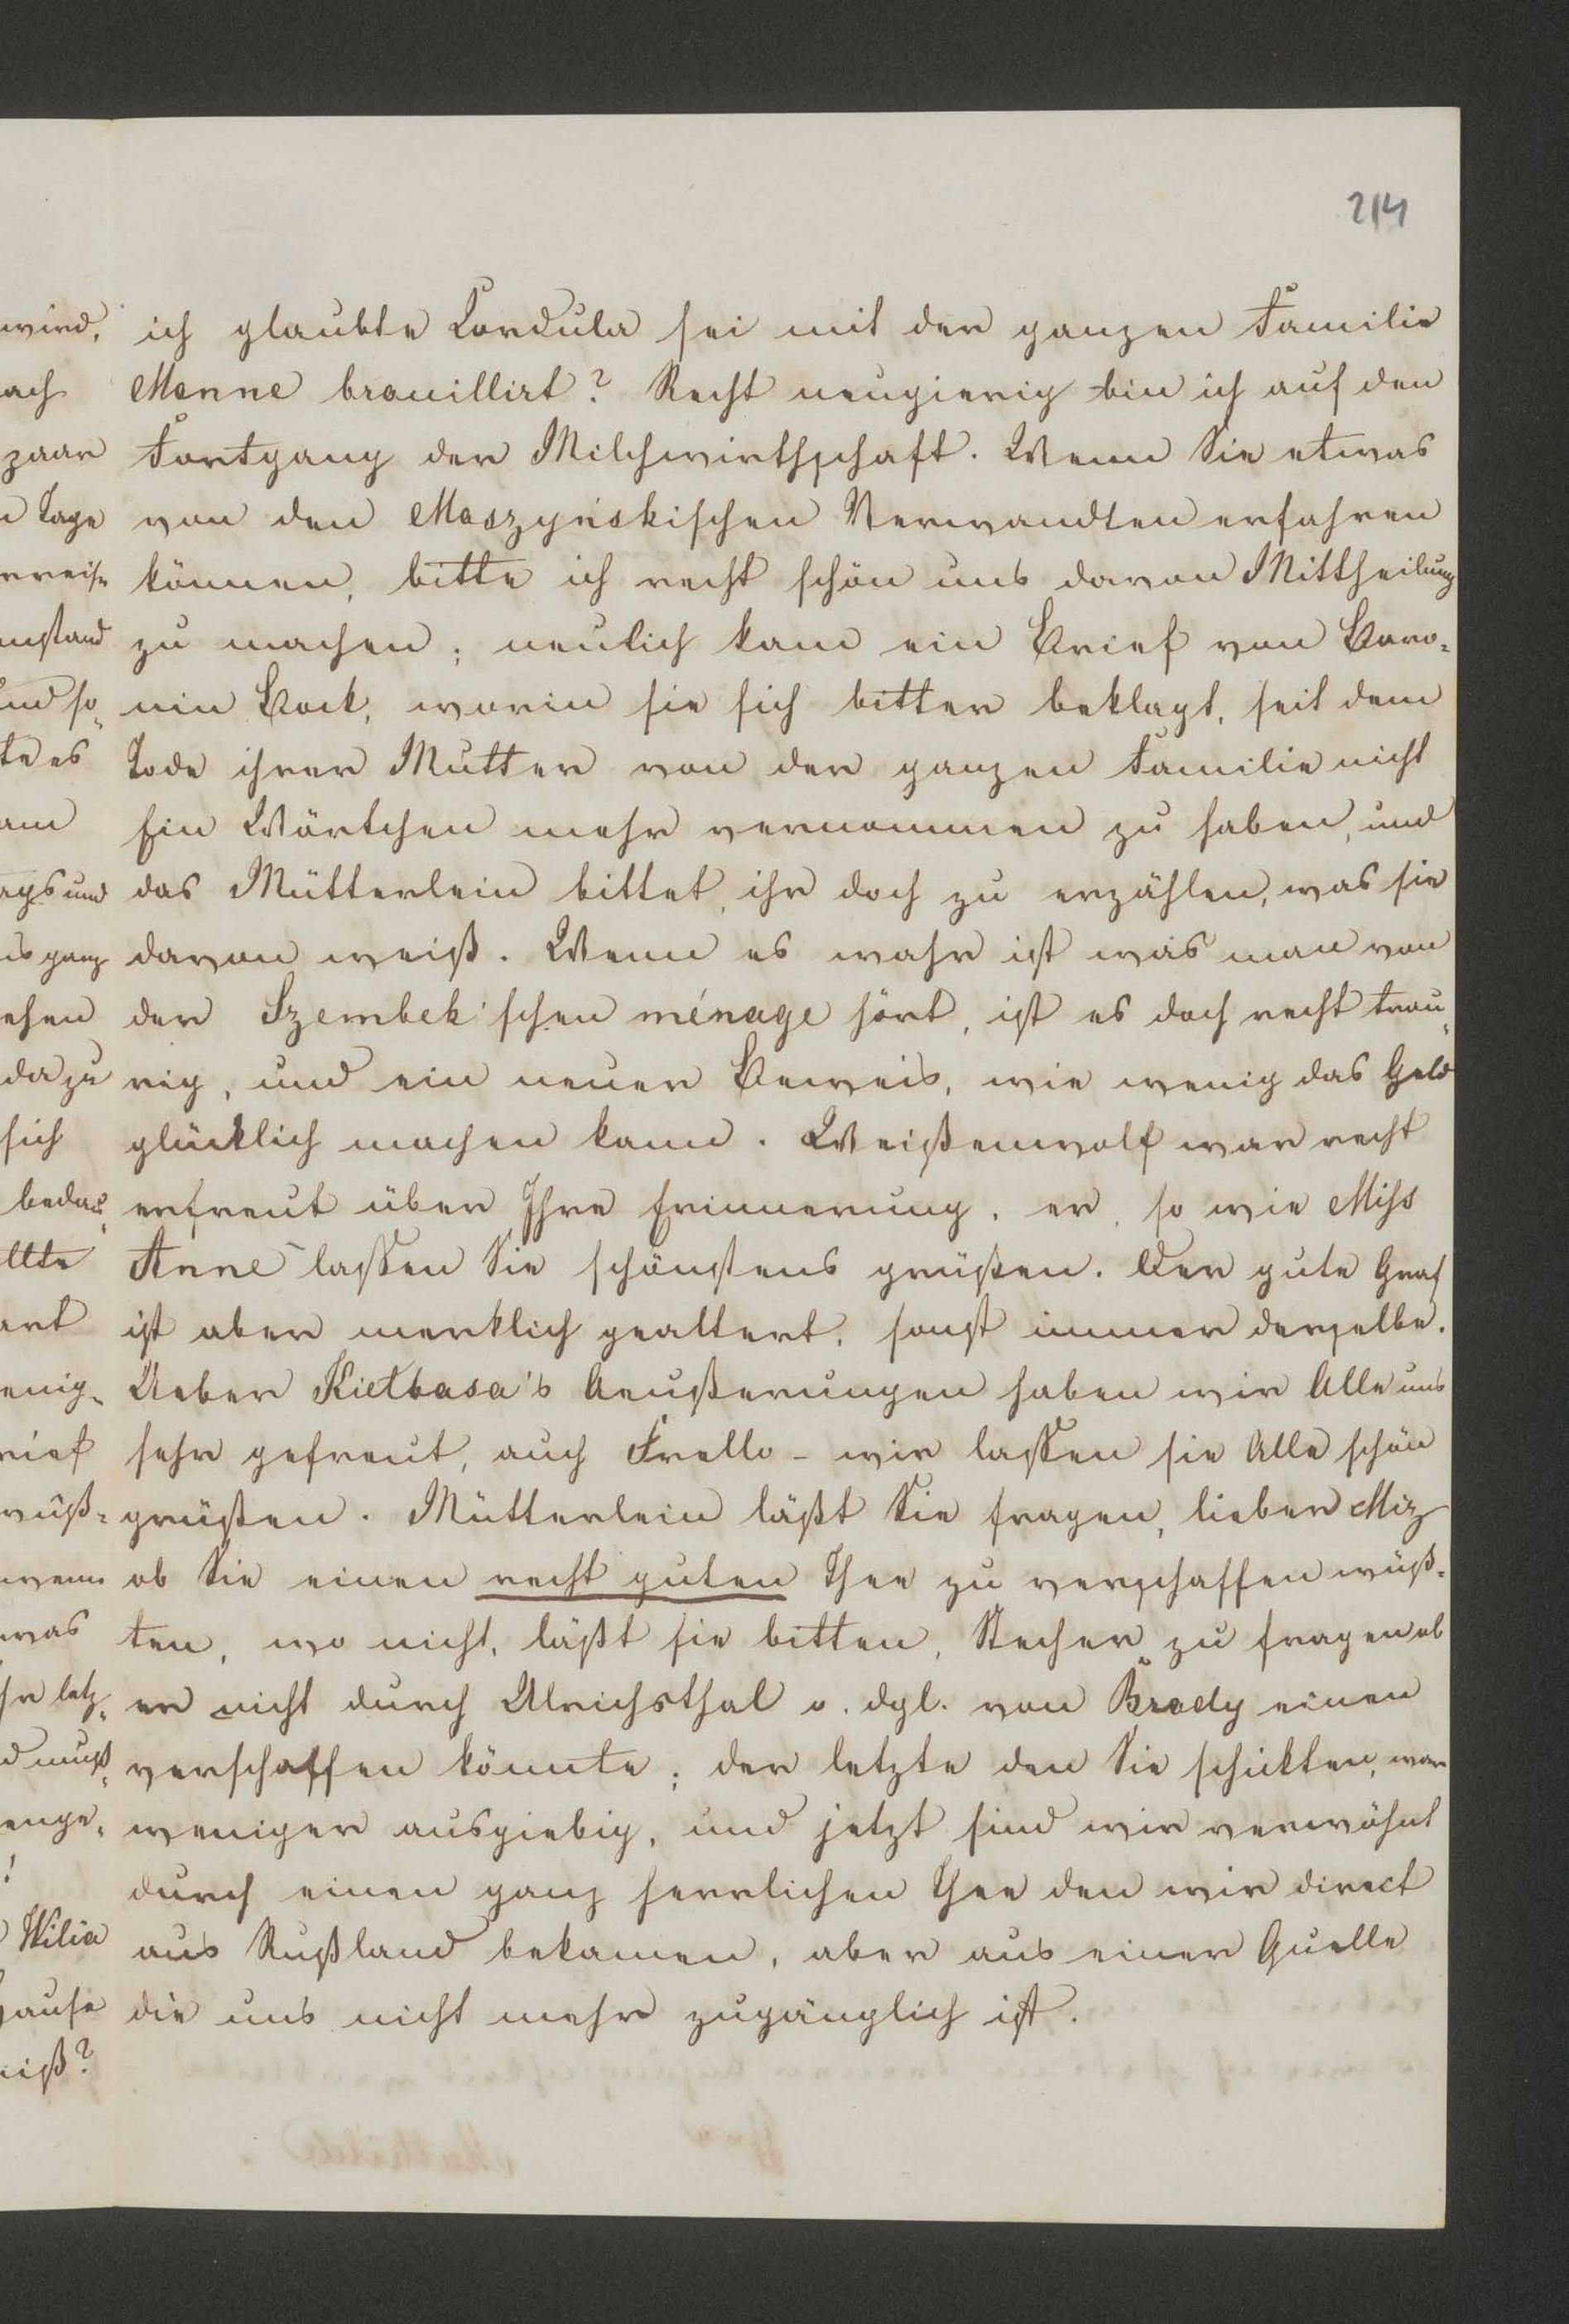 214
ich glaubte Cordula sei mit der ganzen Familie
Menne brouillirt? Recht neugierig bin ich auf den
Fortgang der Milchwirthschaft. Wenn Sie etwas
von den Moszyńskischen Verwandten erfahren
können, bitte ich recht schön uns davon Mittheilung
zu machen; neulich kam ein Brief von Baro-
nin Bock, worin sie sich bitter beklagt, seit dem
Tode ihrer Mutter von der ganzen Familie nicht
Ein Wörtchen mehr vernommen zu haben, und
das Mütterlein bittet, ihr doch zu erzählen, was sie
davon weiß. Wenn es wahr ist was man von
der Szembek'schen ménage hört, ist es doch recht trau-
rig, und ein neuer Beweis, wie wenig das Geld
glücklich machen kann. Weißenwolf war recht
erfreut über Ihre Erinnerung, er, so wie Miss
Anne lassen Sie schönstens grüßen. Der gute Graf
ist aber merklich gealtert, sonst immer derselbe.
Ueber Kiełbasa's Aeußerungen haben wir Alle uns
sehr gefreut, auch Frello - wir lassen sie Alle schön
grüßen. Mütterlein läßt Sie fragen, lieber Miz
ob Sie einen recht guten Thee zu verschaffen wüß-
ten, wo nicht, läßt sie bitten, Stecher zu fragen ob
er nicht durch Ulrichsthal o. dgl. von Brody einen
verschaffen könnte; der letzte den Sie schickten, war
weniger ausgiebig, und jetzt sind wir verwöhnt
durch einen ganz herrlichen Thee den wir direct
aus Rußland bekamen, aber aus einer Quelle
die uns nicht mehr zugänglich ist.